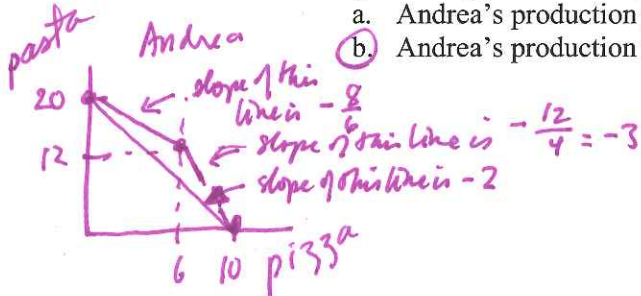 a. Andrea's production
b. Andrea's production
pasta
Andrea
slope of this
line is - 8/6
20
slope of this line is - 12/4 = -3
12
slope of this line is - 2
6 10 pizza